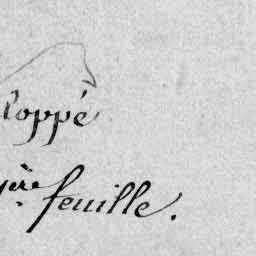 loppé
ère feuille.